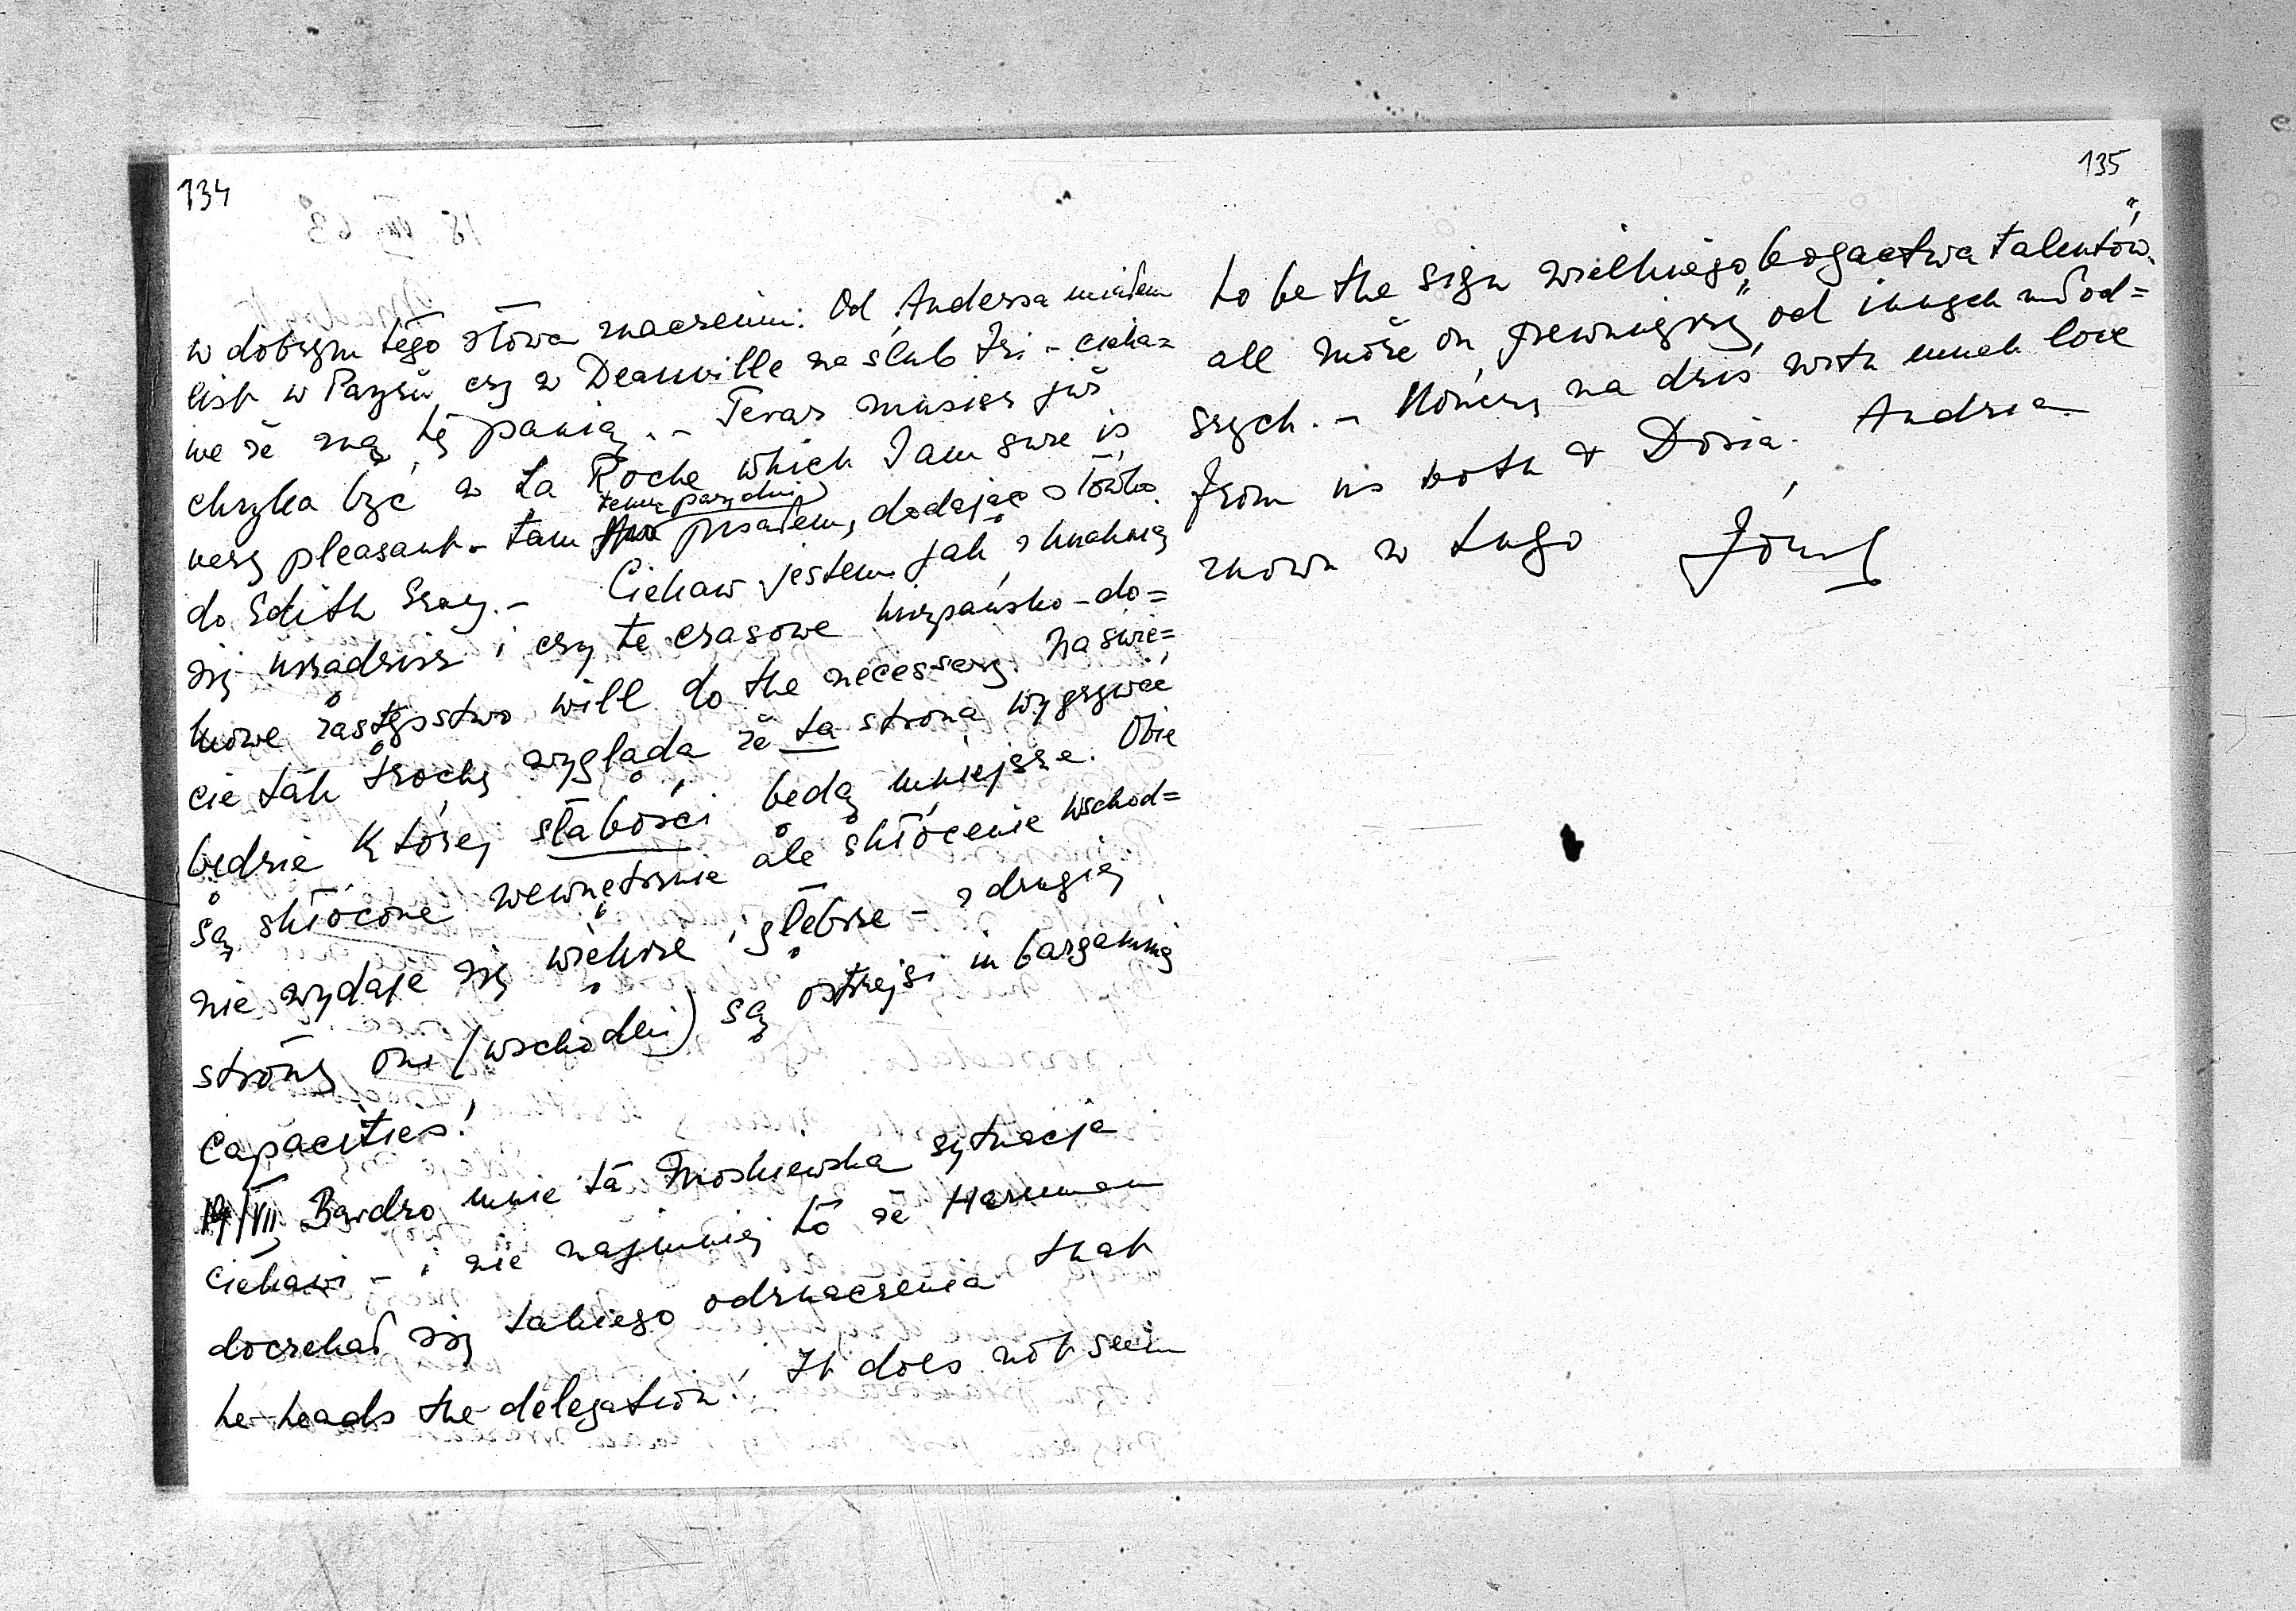 134
w dobrym tego słowa znaczeniu. Od Andersa miałem
list w Paryżu czy w Deauville na ślub Iri – cieka=
we że zną tę panią. – Teraz musisz już
chyba być w La Roche which I am sure is
very pleasant – tam temu parę dni pisałem, dodając słówko
do Edith Szacy. – Ciekaw jestem jak z kuchnią
się urządzisz i czy te czasowe hiszpańsko-do=
mowe zastępstwo will do the necessary. Na świe=
cie tak trochę wygląda że ta strona wygrywać
będzie której słabości będą mniejsze. Obie
są skłócone wewnętrznie ale skłócenie wschod=
nie wydaje się większe i głębsze – z drugiej
strony oni (wschodni) są ostrzejsi in bargaining
capacities!
19/VII Bardzo mnie ta moskiewska sytuacja
ciekawi – i nie najmniej to że Harriman
doczekał się takiego odznaczenia that
he heads the delegation! It does not seem
135
to be the sign wielkiego „bogactwa talentów"
ale może on „pewniejszy" od innych młod=
szych. – Kończę na dziś with much love
from us both & Dosia. Andrzea
znowu w Lugo Józef